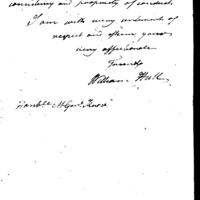 consistency and propriety of conduct.
I am with every sentiment of
respect and esteem yours
very affectionate
Friend
William Hull
Honble. M. Genl. Knox